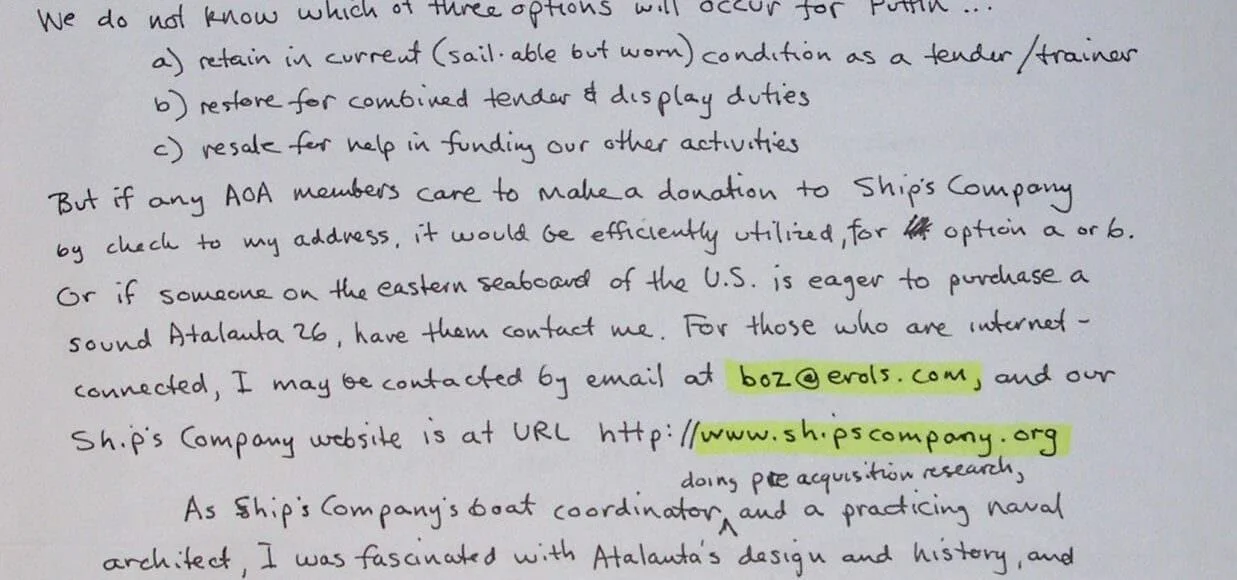 We do not know which of three options will occur for Puffin ...
a) retain in current (sail-able but worn) condition as a tender/trainer
b) restore for combined tender & display duties
c) resale for help in funding our other activities
But if any AOA members care to make a donation to Ship's Company
by check to my address, it would be efficiently utilized, for option a or b.
Or if someone on the eastern seaboard of the U.S. is eager to purchase a
sound Atalanta 26, have them contact me. For those who are internet-
connected, I may be contacted by email at boz@erols.com, and our
Ship's Company website is at URL http://www.shipscompany.org
doing pre acquisition research,
As Ship's Company's boat coordinator, and a practicing naval
architect, I was fascinated with Atalanta's design and history, and